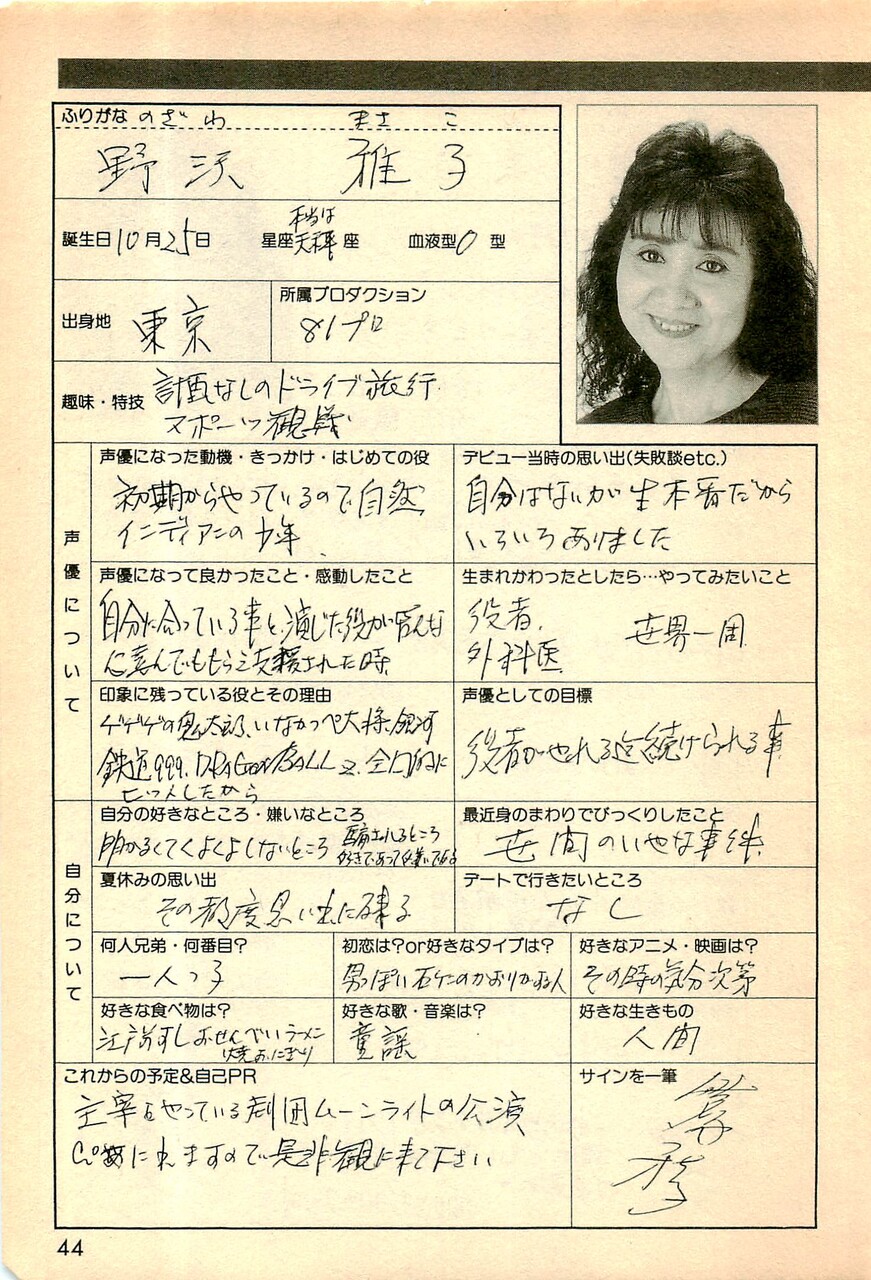 ふりがな のざわ まさこ
野沢 雅子
誕生日10月25日 星座 本当は天秤座 血液型O型
出身地 東京
所属プロダクション
81プロ
趣味・特技 計画なしのドライブ旅行
スポーツ観戦
声優について
声優になった動機・きっかけ・はじめての役
初期からやっているので自然
インディアンの少年
デビュー当時の思い出(失敗談etc.)
自分はないが生本番だから
いろいろありました
声優になって良かったこと・感動したこと
自分に合っている事と、演じた役が皆んな
に喜んでもらえ支援された時
生まれかわったとしたら…やってみたいこと
役者、世界一周
外科医
印象に残っている役とその理由
ゲゲゲの鬼太郎、いなかっぺ大将、銀河
鉄道999、DRAGON BALL Z、全部的に
ヒットしたから
声優としての目標
役者がやれる迄続けられる事
自分について
自分の好きなところ・嫌いなところ
明かるくてくよくよしないところ 騙されるところ
好きであって嫌いである
最近身のまわりでびっくりしたこと
世間のいやな事件
夏休みの思い出
その都度思い出に残る
デートで行きたいところ
なし
何人兄弟・何番目?
一人っ子
初恋は?or好きなタイプは?
男っぽい
好きなアニメ・映画は?
その時の気分次第
好きな食べ物は?
江戸前すし おせんべい ラーメン
焼おにぎり
好きな歌・音楽は?
童謡
好きな生きもの
人間
これからの予定&自己PR
主宰をやっている劇団ムーンライトの公演
に入ますので是非観に来て下さい
サインを一筆
44